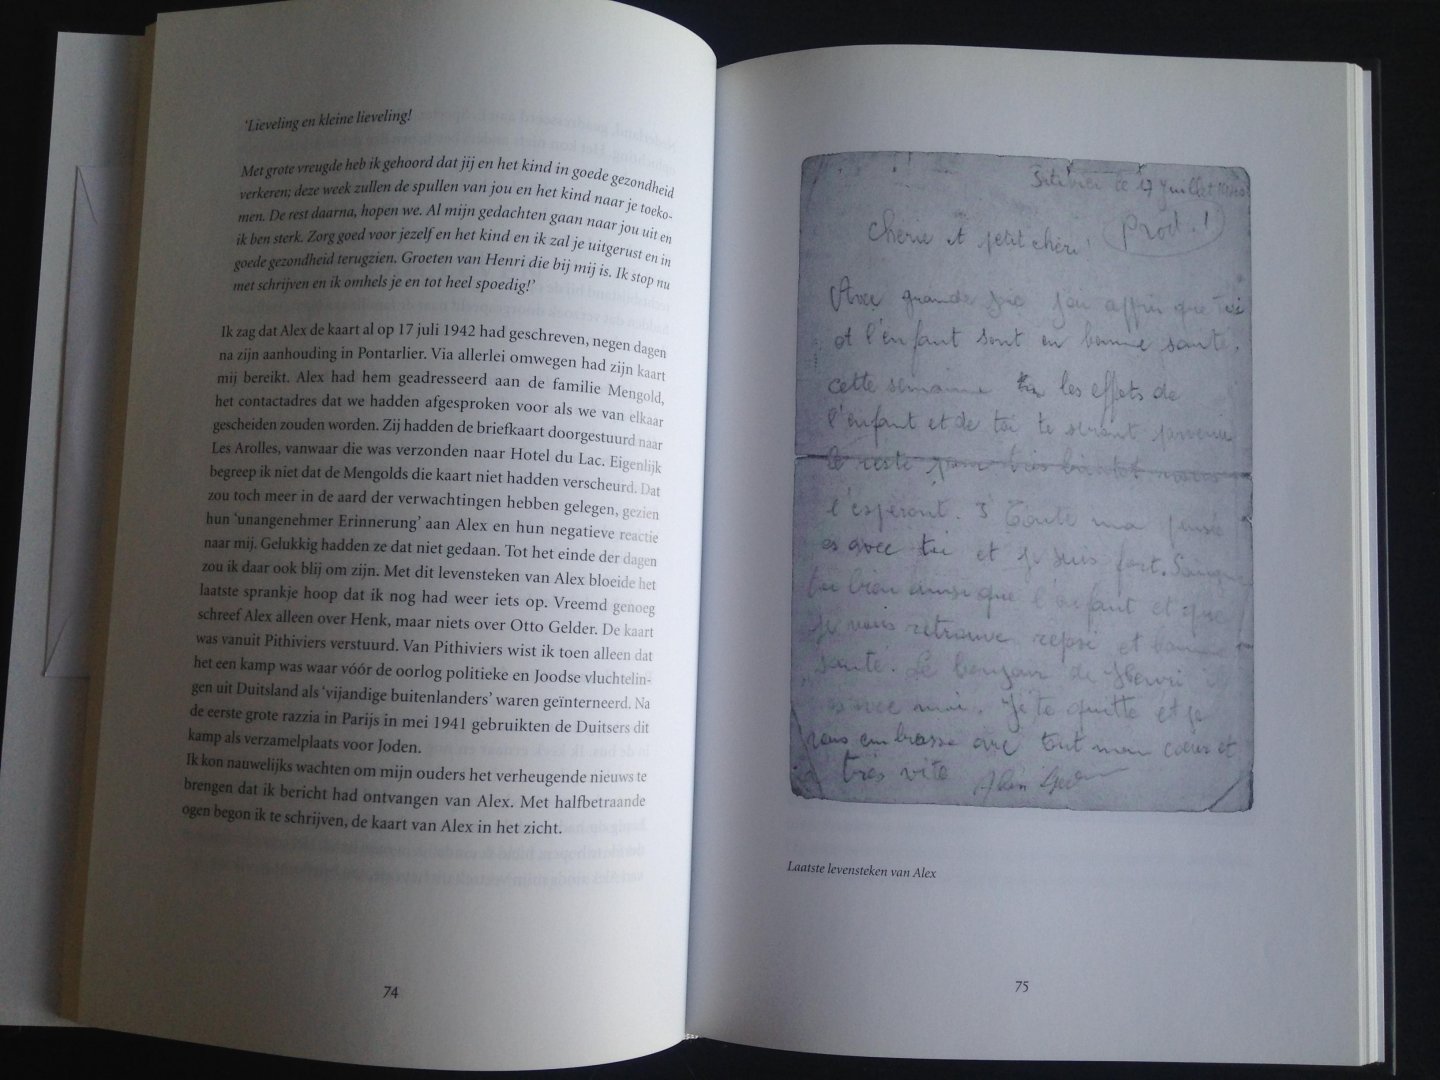 ‘Lieveling en kleine lieveling!
Met grote vreugde heb ik gehoord dat jij en het kind in goede gezondheid
verkeren; deze week zullen de spullen van jou en het kind naar je toeko-
men. De rest daarna, hopen we. Al mijn gedachten gaan naar jou uit en
ik ben sterk. Zorg goed voor jezelf en het kind en ik zal je uitgerust en in
goede gezondheid terugzien. Groeten van Henri die bij mij is. Ik stop nu
met schrijven en ik omhels je en tot heel spoedig!’
Ik zag dat Alex de kaart al op 17 juli 1942 had geschreven, negen dagen
na zijn aanhouding in Pontarlier. Via allerlei omwegen had zijn kaart
mij bereikt. Alex had hem geadresseerd aan de familie Mengold,
het contactadres dat we hadden afgesproken voor als we van elkaar
gescheiden zouden worden. Zij hadden de briefkaart doorgestuurd naar
Les Arolles, vanwaar die was verzonden naar Hotel du Lac. Eigenlijk
begreep ik niet dat de Mengolds die kaart niet hadden verscheurd. Dat
zou toch meer in de aard der verwachtingen hebben gelegen, gezien
hun ‘unangenehmer Erinnerung’ aan Alex en hun negatieve reactie
naar mij. Gelukkig hadden ze dat niet gedaan. Tot het einde der dagen
zou ik daar ook blij om zijn. Met dit levensteken van Alex bloeide het
laatste sprankje hoop dat ik nog had weer iets op. Vreemd genoeg
schreef Alex alleen over Henk, maar niets over Otto Gelder. De kaart
was vanuit Pithiviers verstuurd. Van Pithiviers wist ik toen alleen dat
het een kamp was waar vóór de oorlog politieke en Joodse vluchtelin-
gen uit Duitsland als ‘vijandige buitenlanders’ waren geïnterneerd. Na
de eerste grote razzia in Parijs in mei 1941 gebruikten de Duitsers dit
kamp als verzamelplaats voor Joden.
Ik kon nauwelijks wachten om mijn ouders het verheugende nieuws te
brengen dat ik bericht had ontvangen van Alex. Met halfbetraande
ogen begon ik te schrijven, de kaart van Alex in het zicht.
74
le 17 Juillet
Cherie et petit cheri! Prod.!
Avec grande joie j'ai appris que toi
et l'enfant sont en bonne sante.
cette semaine les effets de
l'enfant et de toi te seront parvenu
le reste
l'esperont. Toute ma pensé
es avec toi et je suis fort.
bien ainsi que l'enfant et que
je vous retrouve repose et bonne
santé. Le bonjour de Henri
avec moi. Je te quitte et je
vous embrasse avec tout mon coeur et
très vite
Laatste levensteken van Alex
75